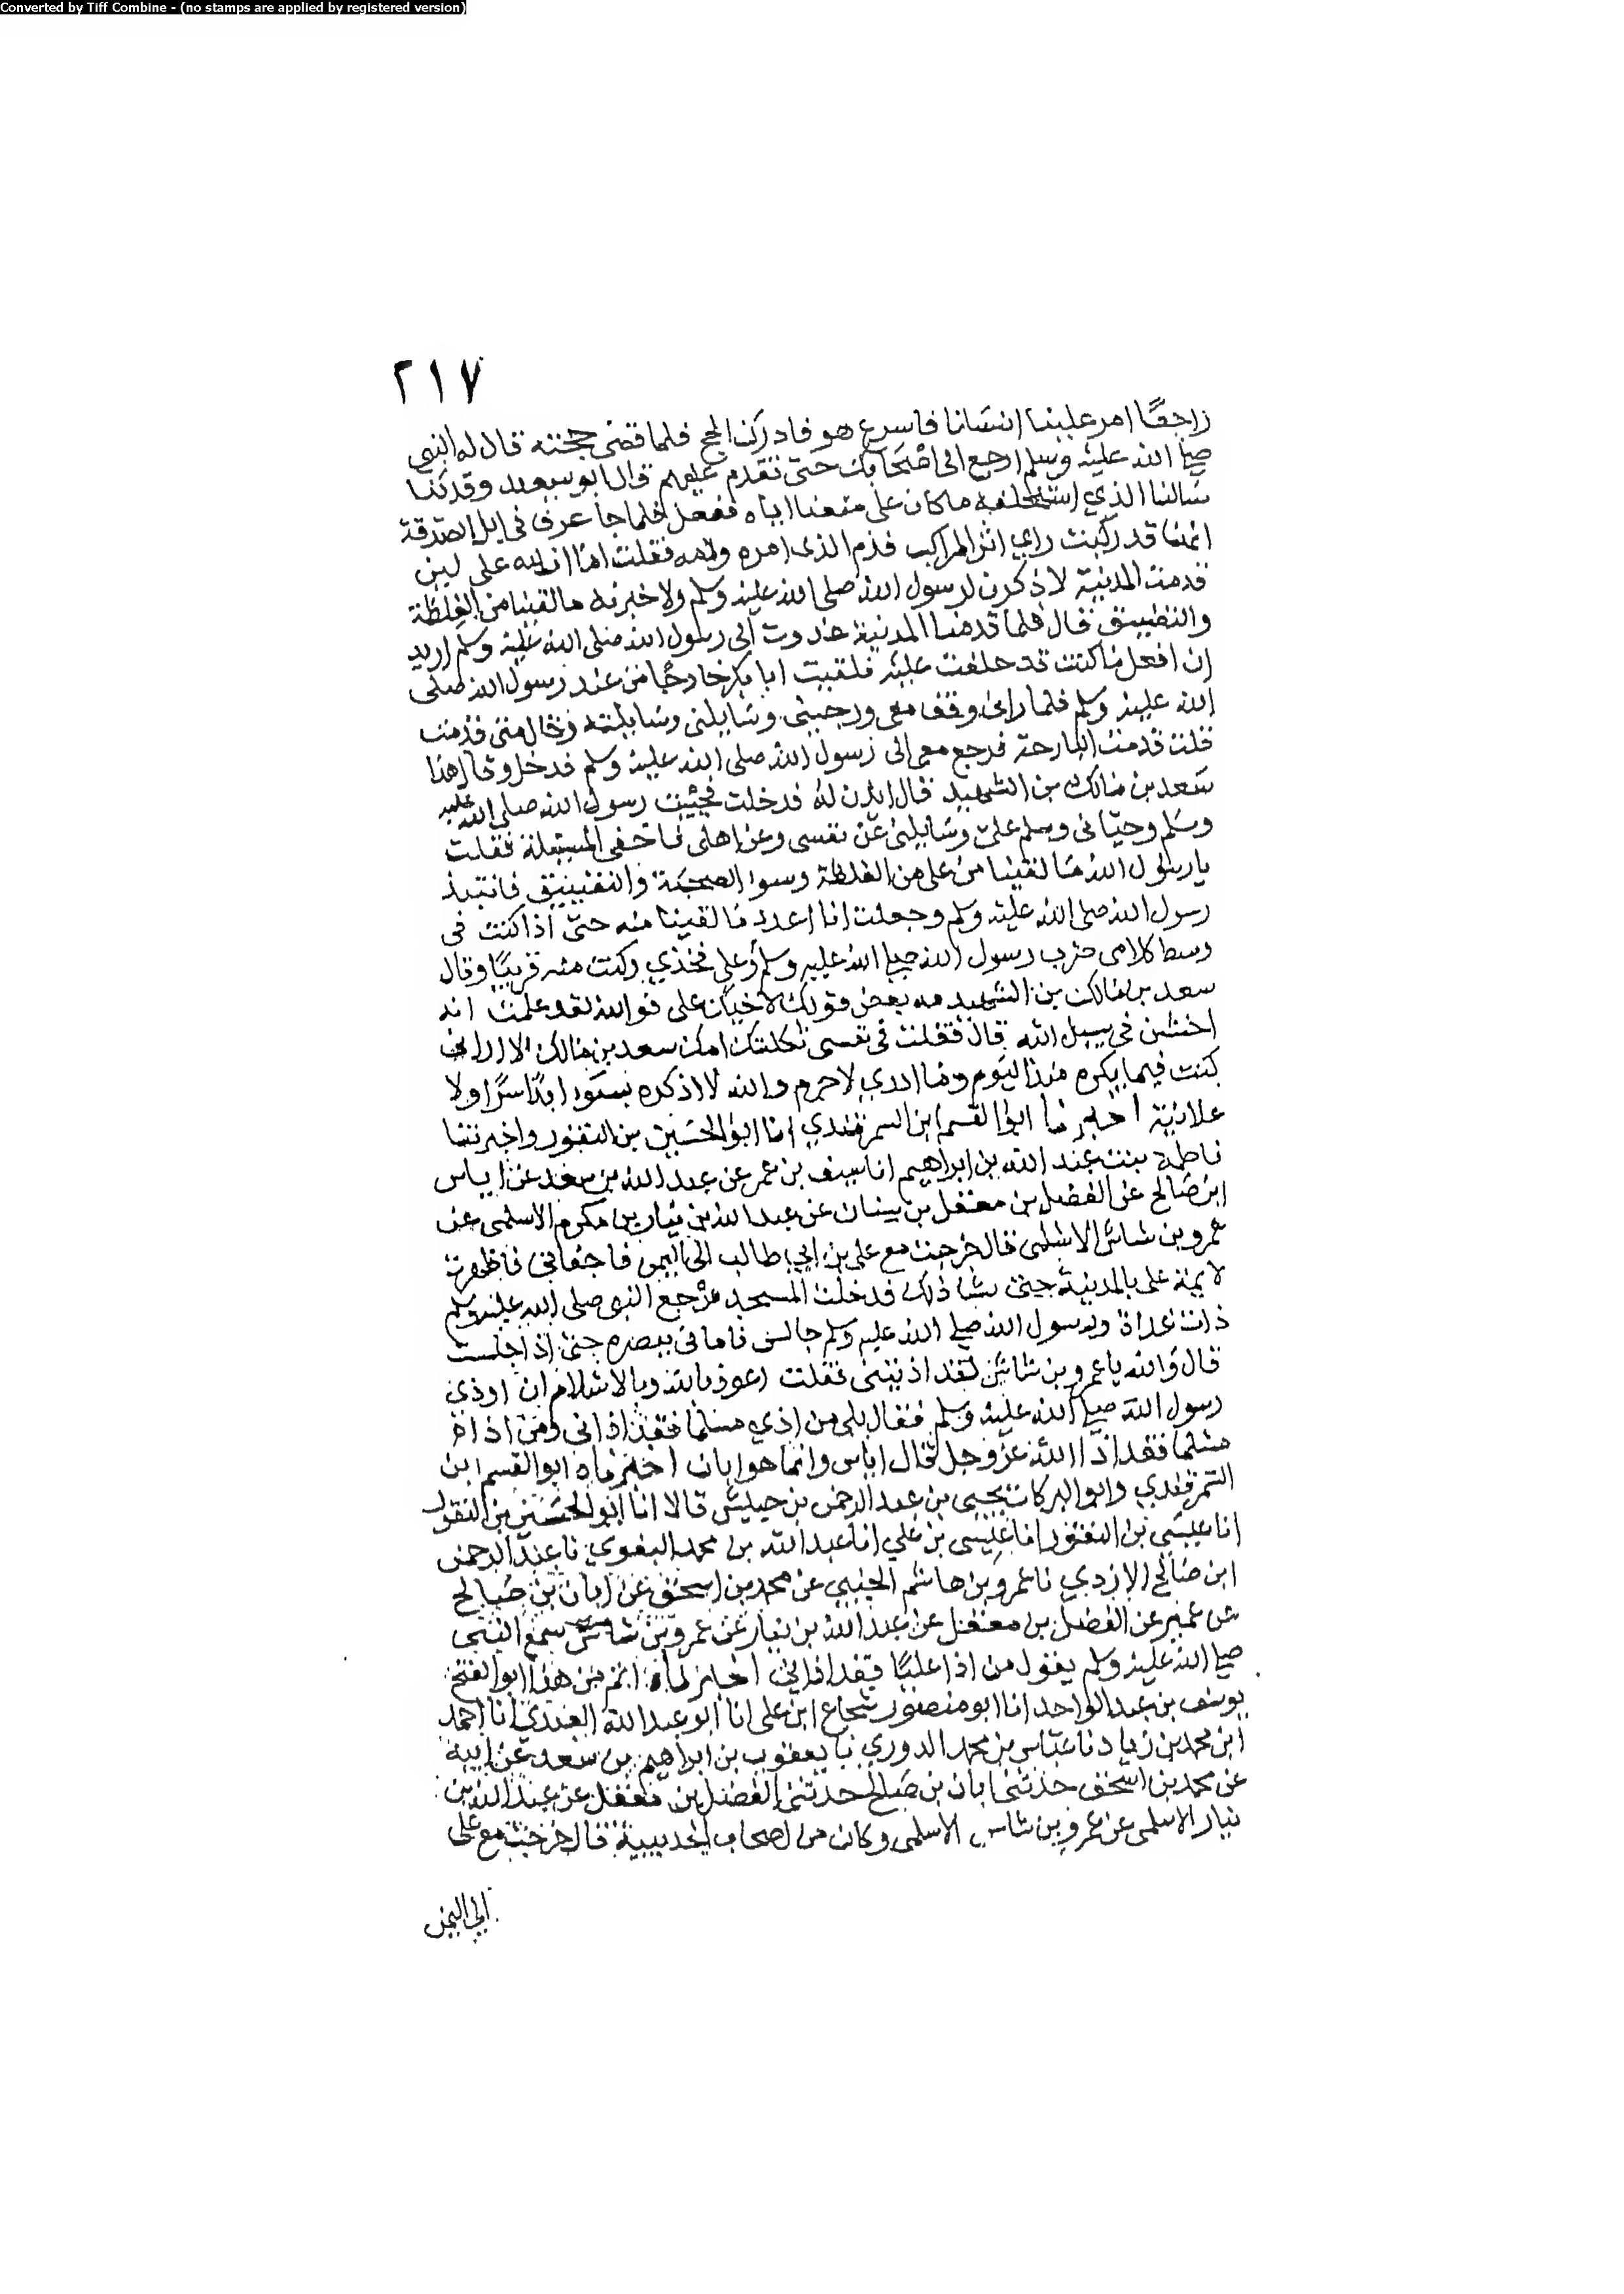 Converted by Tiff Combine - (no stamps are applied by registered version)
٢١٧
راجعًا امر علينا انسانا فاسرع هو فادرك الحج فلما قضى حجته قال له النبي
صلى الله عليه وسلم ارجع الى اصحابك حتى تقدم عليهم قال ابو سعيد وقد كنا
سالنا الذي استخلفه ما كان على منعنا اياه ففعل فلما جا عرف في ابل الصدقة
انها قد ركبت راى اثر المراكب فذم الذي امره ولامه فقلت اما ان لله على لين
قدمت المدينة لاذكرن لرسول الله صلى الله عليه وسلم ولاخبرنه ما لقينا من الغلظة
والتضييق قال فلما قدمنا المدينة غدوت الى رسول الله صلى الله عليه وسلم اريد
ان افعل ما كنت قد حلفت عليه فلقيت ابا بكر خارجًا من عند رسول الله صلى
الله عليه وسلم فلما راني وقف معي ورحب بي وسايلني وسايلته وقال متى قدمت
قلت قدمت البارحة فرجع معي الى رسول الله صلى الله عليه وسلم فدخل وقال هذا
سعد بن مالك بن الشهيد قال ايذن له فدخلت فحييت رسول الله صلى الله عليه
وسلم وحياني وسلم علي وسايلني عن نفسي وعن اهلي فاحفى المسئلة فقلت
يا رسول الله ما لقينا من علي من الغلظة وسوا الصحبة والتضييق فانتبذ
رسول الله صلى الله عليه وسلم وجعلت انا اعدد ما لقينا منه حتى اذا كنت في
وسط كلامي ضرب رسول الله صلى الله عليه وسلم على فخذي وكنت منه قريبًا وقال
سعد بن مالك بن الشهيد مه بعض قولك لاخيك علي فوالله لقد علمت انه
اخشن في سبيل الله قال فقلت في نفسي ثكلتك امك سعد بن مالك الا اراني
كنت فيما يكره منذ اليوم وما ادري لا جرم والله لا اذكره بسوء ابدًا سرًا ولا
علانية اخبرنا ابو القسم ابن السمرقندي انا ابو الحسين بن النقور واخبرتنا
فاطمة بنت عبد الله بن ابراهيم انا سيف بن عمر عن عبد الله بن سعد عن اياس
ابن صالح عن الفضل بن معقل بن سنان عن عبد الله بن نيار بن مكرم الاسلمي عن
عمرو بن شاس الاسلمي قال خرجت مع علي بن ابي طالب الى اليمن فاجفاني فاظهرت
لايمة علي بالمدينة حتى فشا ذلك فدخلت المسجد النبي صلى الله عليه وسلم
ذات غداة ورسول الله صلى الله عليه وسلم جالس ببصره حتى اذا جلست
قال والله يا عمرو بن شاس لقد اذيتني فقلت اعوذ بالله وبالاسلام ان اوذي
رسول الله صلى الله عليه وسلم فقال بلى من اذي مسلما فقد اذاني ومن اذاني
فقد اذا الله عز وجل قال اياس وانما هو ابان اخبرناه ابو القسم ابن
السمرقندي وابو البركات يحيى بن عبد الرحمن بن حبيش قالا انا ابو الحسين بن النقور
انا عيسى بن علي انا عبد الله بن محمد البغوي نا عبد الرحمن
ابن صالح الازدي نا عمرو بن هاشم الجنبي عن محمد بن اسحق عن ابان بن صالح
عن الفضل بن معقل عن عبد الله بن نيار عن عمرو بن شاس سمع النبي
صلى الله عليه وسلم يقول من اذا عليًا فقد اذاني اخبرناه اتم من هذا ابو الفتح
يوسف بن عبد الواحد انا ابو منصور شجاع ابن علي انا ابو عبد الله العبدي انا احمد
ابن محمد بن زياد نا عباس بن محمد الدوري نا يعقوب بن ابراهيم بن سعد عن ابيه
عن محمد بن اسحق حدثني ابان بن صالح حدثني الفضل بن معقل عن عبد الله بن
نيار الاسلمي عن عمرو بن شاس الاسلمي وكان من اصحاب الحديبية قال خرجت مع علي
الى اليمن